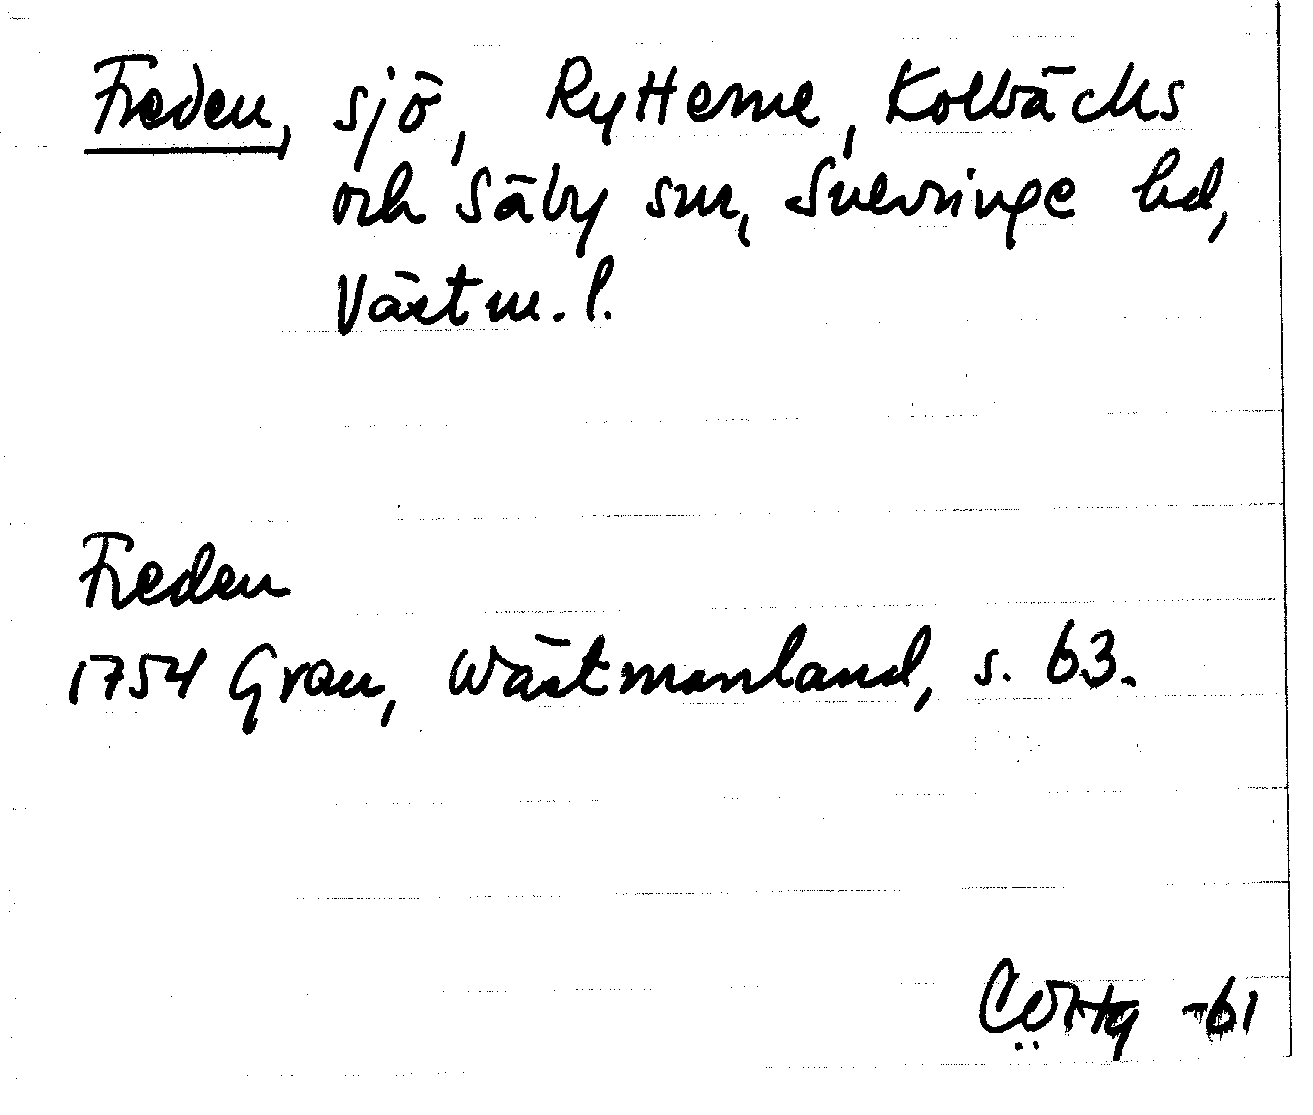 Freden, sjö, Rytterne, Kolbäcks
och Säby snr, Snevringe hd,
Västm. l.
Freden
1754 Grau, Wästmanland, s. 63.
-61